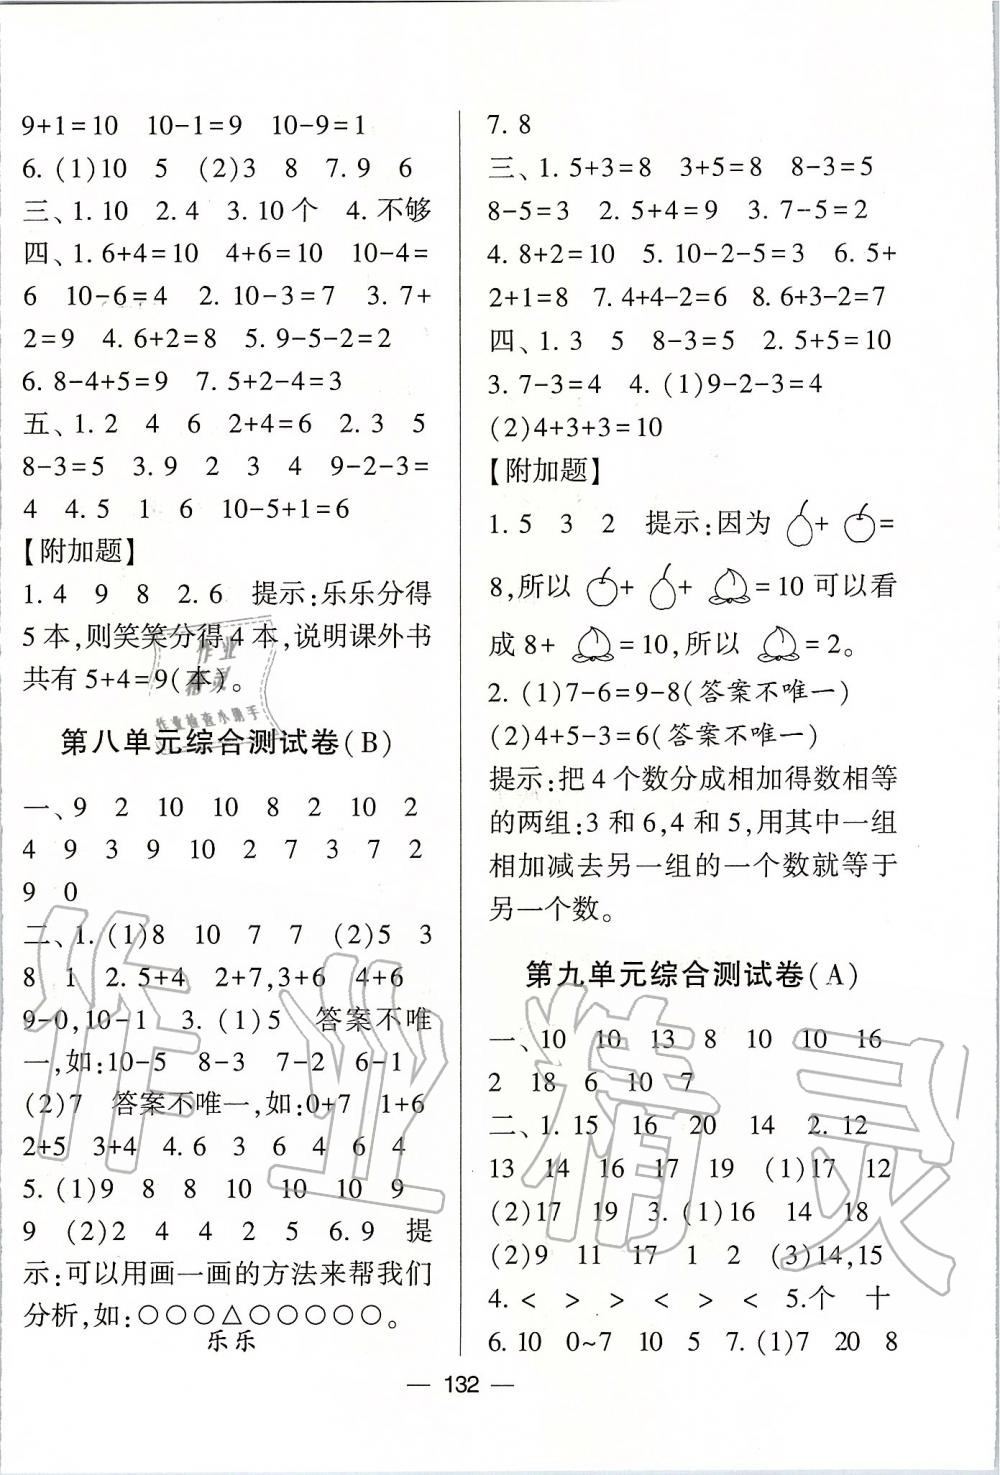 9+1=10 10-1=9 10-9=1
6.(1)10 5 (2)3 8 7.9 6
三、1.10 2.4 3.10个 4.不够
四、1.6+4=10 4+6=10 10-4=
6 10-6=4 2.10-3=7 3.7+
2=9 4.6+2=8 5.9-5-2=2
6.8-4+5=9 7.5+2-4=3
五、1.2 4 6 2+4=6 2.3 5
8-3=5 3.9 2 3 4 9-2-3=
4 4.5 1 6 10-5+1=6
【附加题】
1.4 9 8 2.6 提示:乐乐分得
5本,则笑笑分得4本,说明课外书
共有5+4=9(本)。
第八单元综合测试卷(B)
一、9 2 10 10 8 2 10 2
4 9 3 9 10 2 7 3 7 2
9 0
二、1.(1)8 10 7 7 (2)5 3
8 1 2.5+4 2+7,3+6 4+6
9-0,10-1 3.(1)5 答案不唯
一,如:10-5 8-3 7-2 6-1
(2)7 答案不唯一,如:0+7 1+6
2+5 3+4 4.6 3 6 4 6 4
5.(1)9 8 8 10 10 10 9
9 (2)2 4 4 2 5 6.9 提
示:可以用画一画的方法来帮我们
分析,如:○○○△○○○○○。
乐乐
7.8
三、1.5+3=8 3+5=8 8-3=5
8-5=3 2.5+4=9 3.7-5=2
4.8+2=10 5.10-2-5=3 6.5+
2+1=8 7.4+4-2=6 8.6+3-2=7
四、1.3 5 8-3=5 2.5+5=10
3.7-3=4 4.(1)9-2-3=4
(2)4+3+3=10
【附加题】
1.5 3 2 提示:因为 + =
8,所以 + + =10可以看
成8+ =10,所以 =2。
2.(1)7-6=9-8(答案不唯一)
(2)4+5-3=6(答案不唯一)
提示:把4个数分成相加得数相等
的两组:3和6,4和5,用其中一组
相加减去另一组的一个数就等于
另一个数。
第九单元综合测试卷(A)
一、10 10 13 8 10 10 16
2 18 6 10 7
二、1.15 16 20 14 2.12
13 14 16 17 19 (1)17 12
(2)17 19 3.(1)16 14 18
(2)9 11 17 1 2 (3)14,15
4.< > > < > < 5.个 十
6.10 0~7 10 5 7.(1)7 20 8
— 132 —
作业精灵
作业精灵
作业检查小助手